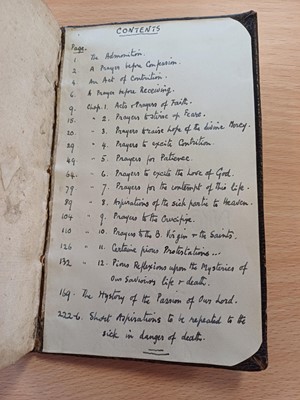 CONTENTS
Page.
1 The Admonition.
2 A Prayer before Confession.
4 An Act of Contrition.
6 A Prayer before Receiving.
9 Chap. 1. Acts & Prayers of Faith.
15. " 2. Prayers to stirre up Feare.
20. " 3. Prayers to raise hope of the divine Mercy.
29 " 4. Prayers to excite Contrition.
49 " 5. Prayers for Patience.
64. " 6. Prayers to excyte the Love of God.
79 " 7. Prayers for the contempt of this life.
89 " 8. Aspirations of the sick partie to Heaven.
104 " 9. Prayers to the Crucifixe.
110 " 10. Prayers to the B. Virgin & the Saints.
126 " 11. Certaine pious Protestations...
132 " 12. Pious Reflexions upon the Mysteries of
Our Saviours life & death.
169. The Hystory of the Passion of Our Lord.
222-6. Short Aspirations to be repeated to the
sick in danger of death.